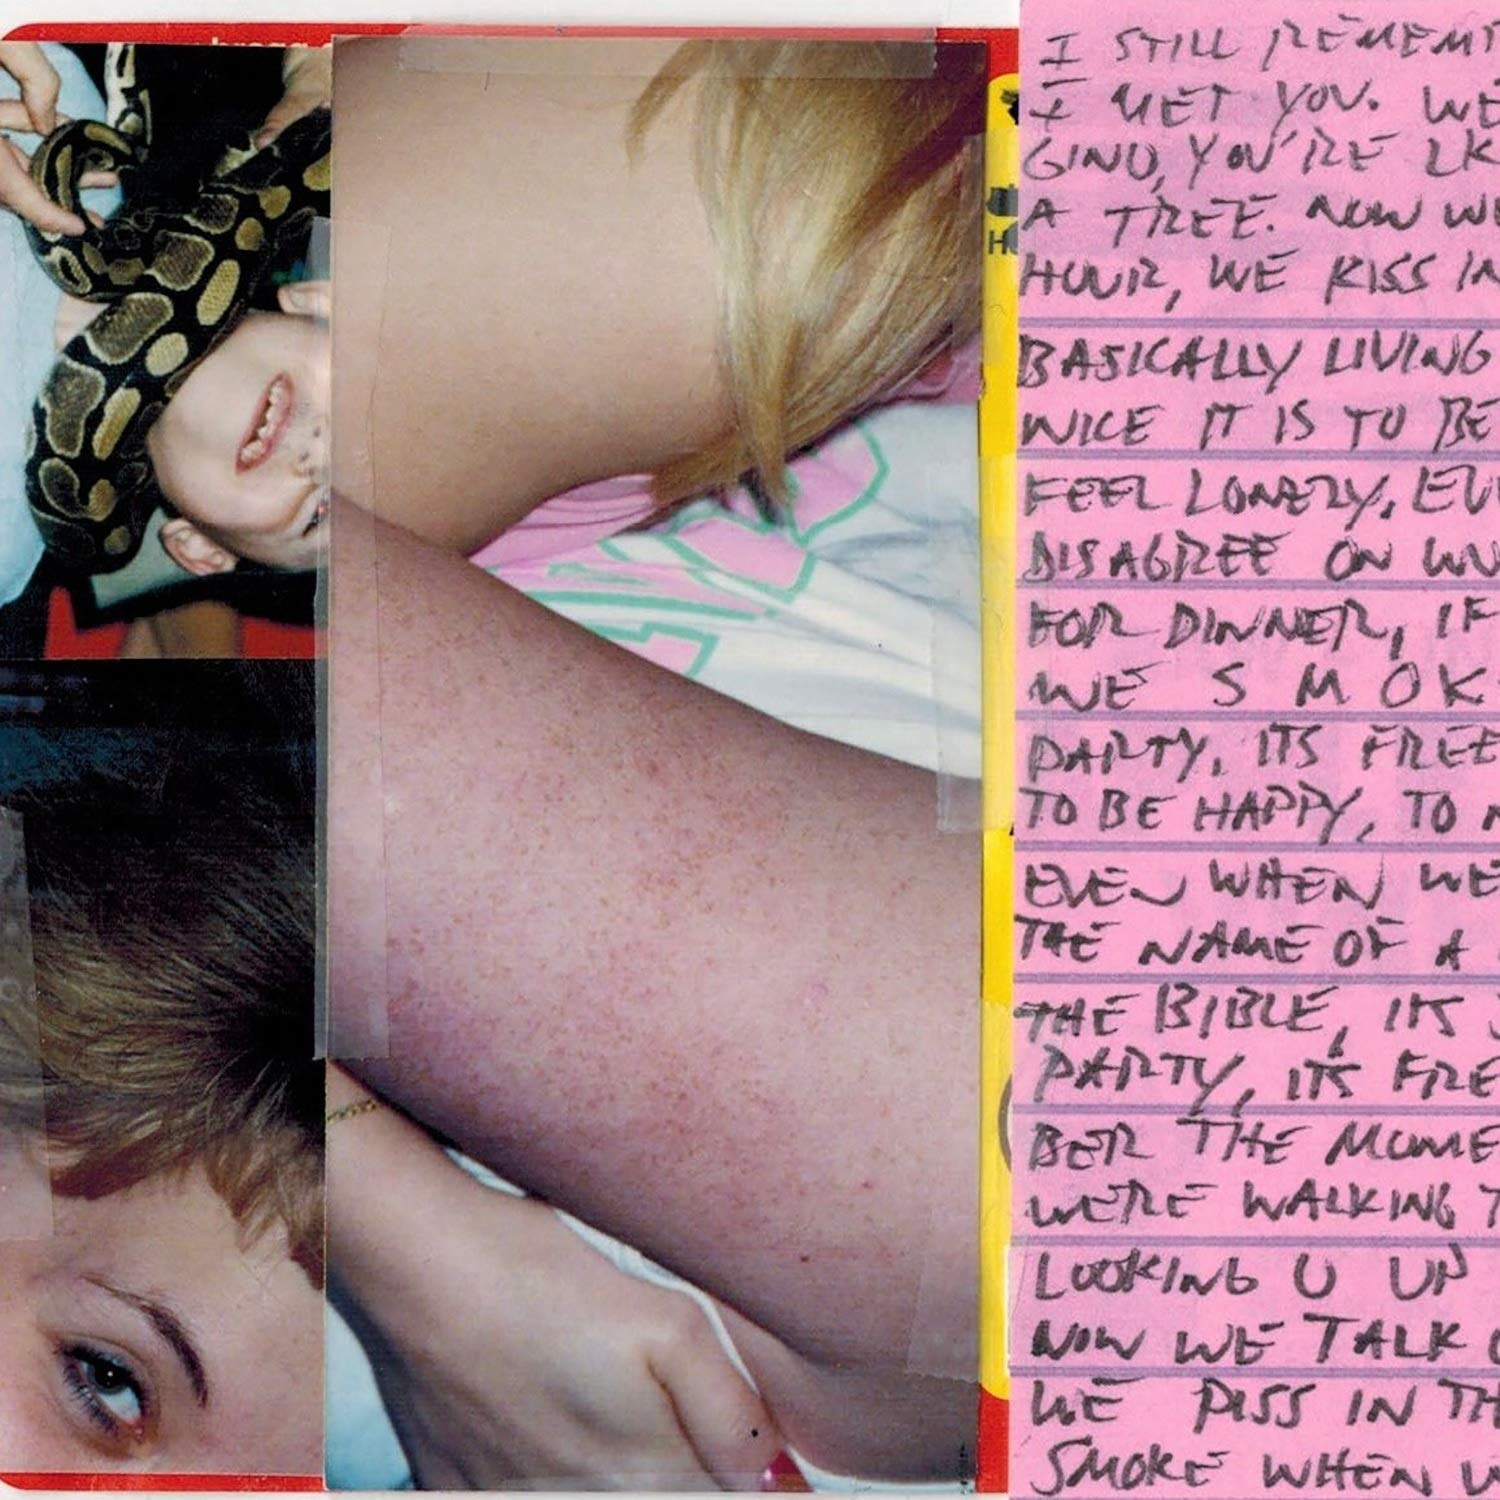 I STILL REMEM
I MET YOU. WE
YOU'RE
A TREE. NOW WE
HOUR, WE KISS IN
BASICALLY LIVING
NICE IT IS TO BE
FEEL LONELY, EV
DISAGREE ON
FOR DINNER, IF
WE SMOK
PARTY, ITS FREE
TO BE HAPPY, TO
EVEN WHEN WE
THE NAME OF A
THE BIBLE, ITS
PARTY, ITS FRE
BER THE MOME
WE'RE WALKING T
LOOKING U UP
NOW WE TALK
WE PISS IN TH
SMOKE WHEN W